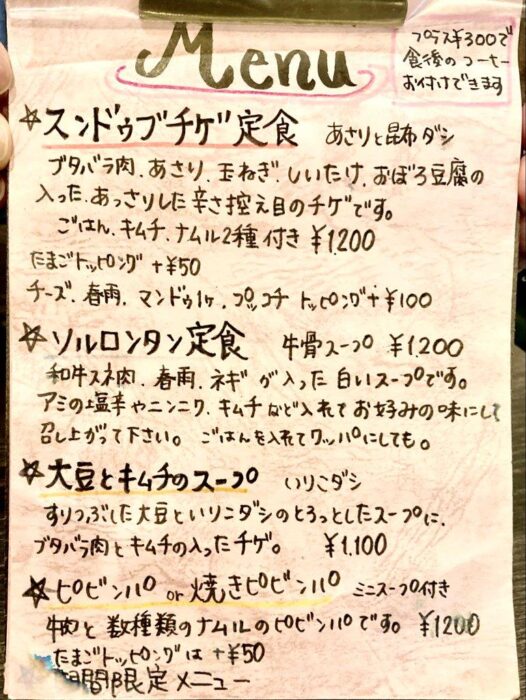 Menu
プラス¥300で
食後のコーヒー
お付けできます
☆スンドゥブチゲ定食 あさりと昆布ダシ
ブタバラ肉、あさり、玉ねぎ、しいたけ、おぼろ豆腐の
入った、あっさりした辛さ控え目のチゲです。
ごはん、キムチ、ナムル2種付き ¥1,200
たまごトッピング +¥50
チーズ、春雨、マンドゥ1ヶ、プッコチ トッピング+¥100
☆ソルロンタン定食 牛骨スープ ¥1,200
和牛スネ肉、春雨、ネギ が入った 白いスープです。
アミの塩辛やニンニク、キムチなど入れてお好みの味にして
召し上がって下さい。 ごはんを入れてクッパにしても。
☆大豆とキムチのスープ いりこダシ
すりつぶした大豆といりこダシのとろっとしたスープに、
ブタバラ肉とキムチの入ったチゲ。 ¥1,100
☆ピビンパ or 焼きピビンパ ミニスープ付き
牛肉と数種類のナムルのピビンパです。 ¥1200
たまごトッピングは +¥50
期間限定メニュー